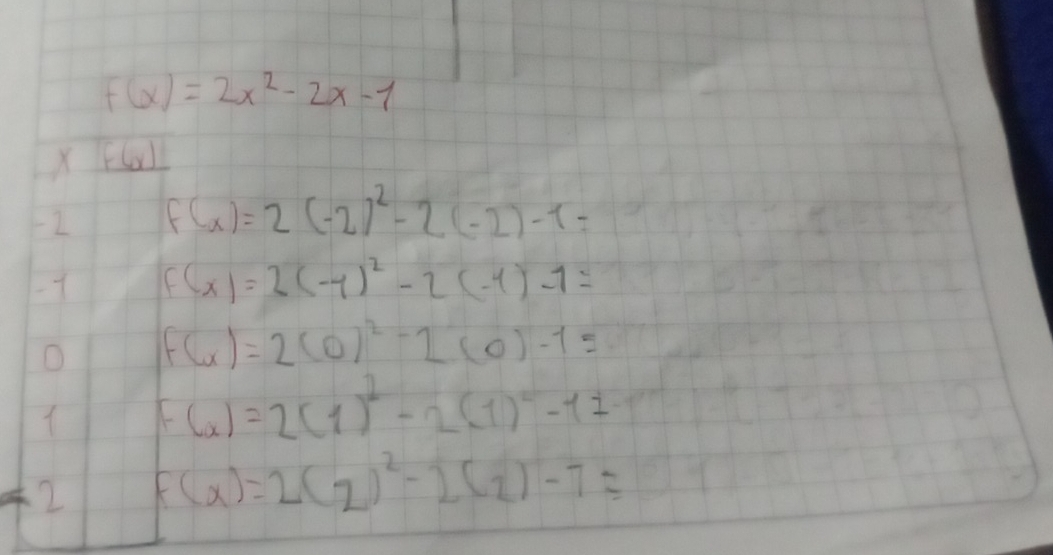 f(x) = 2x² - 2x - 1
x f(x)
-2 f(x) = 2(-2)² - 2(-2) - 1 =
-1 f(x) = 2(-1)² - 2(-1) - 1 =
0 f(x) = 2(0)² - 2(0) - 1 =
1 f(x) = 2(1)² - 2(1) - 1 =
2 f(x) = 2(2)² - 2(2) - 1 =